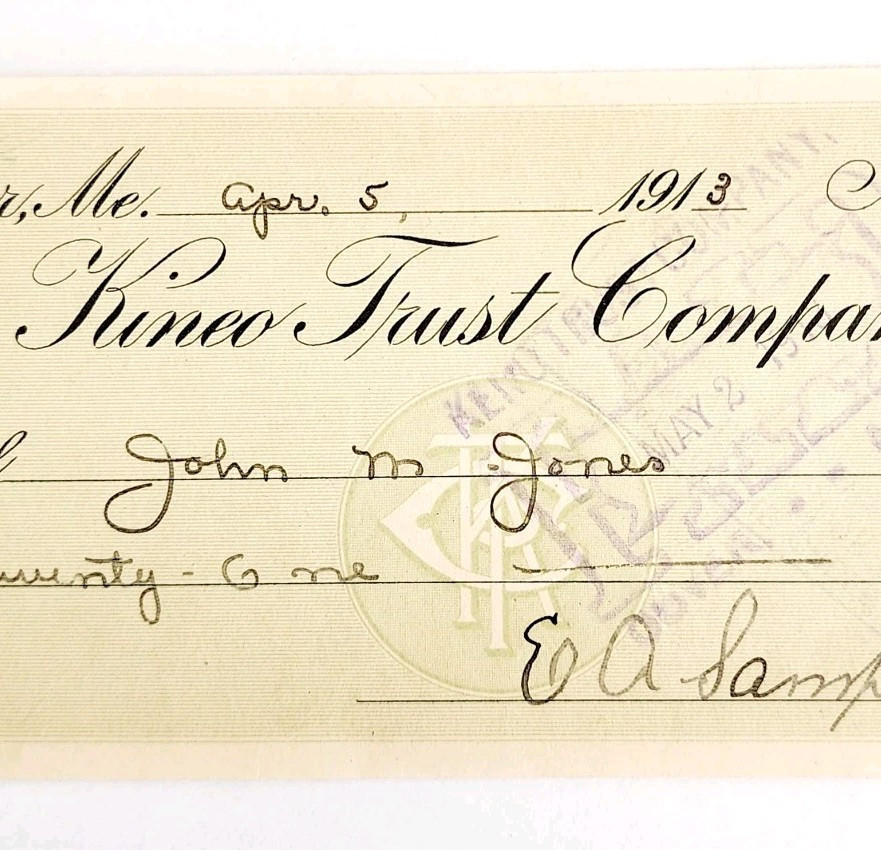 r, Me. Apr. 5, 1913
Kineo Trust Compan
John M Jones
wenty-One
E A Samp
COMPANY,
MAY 2